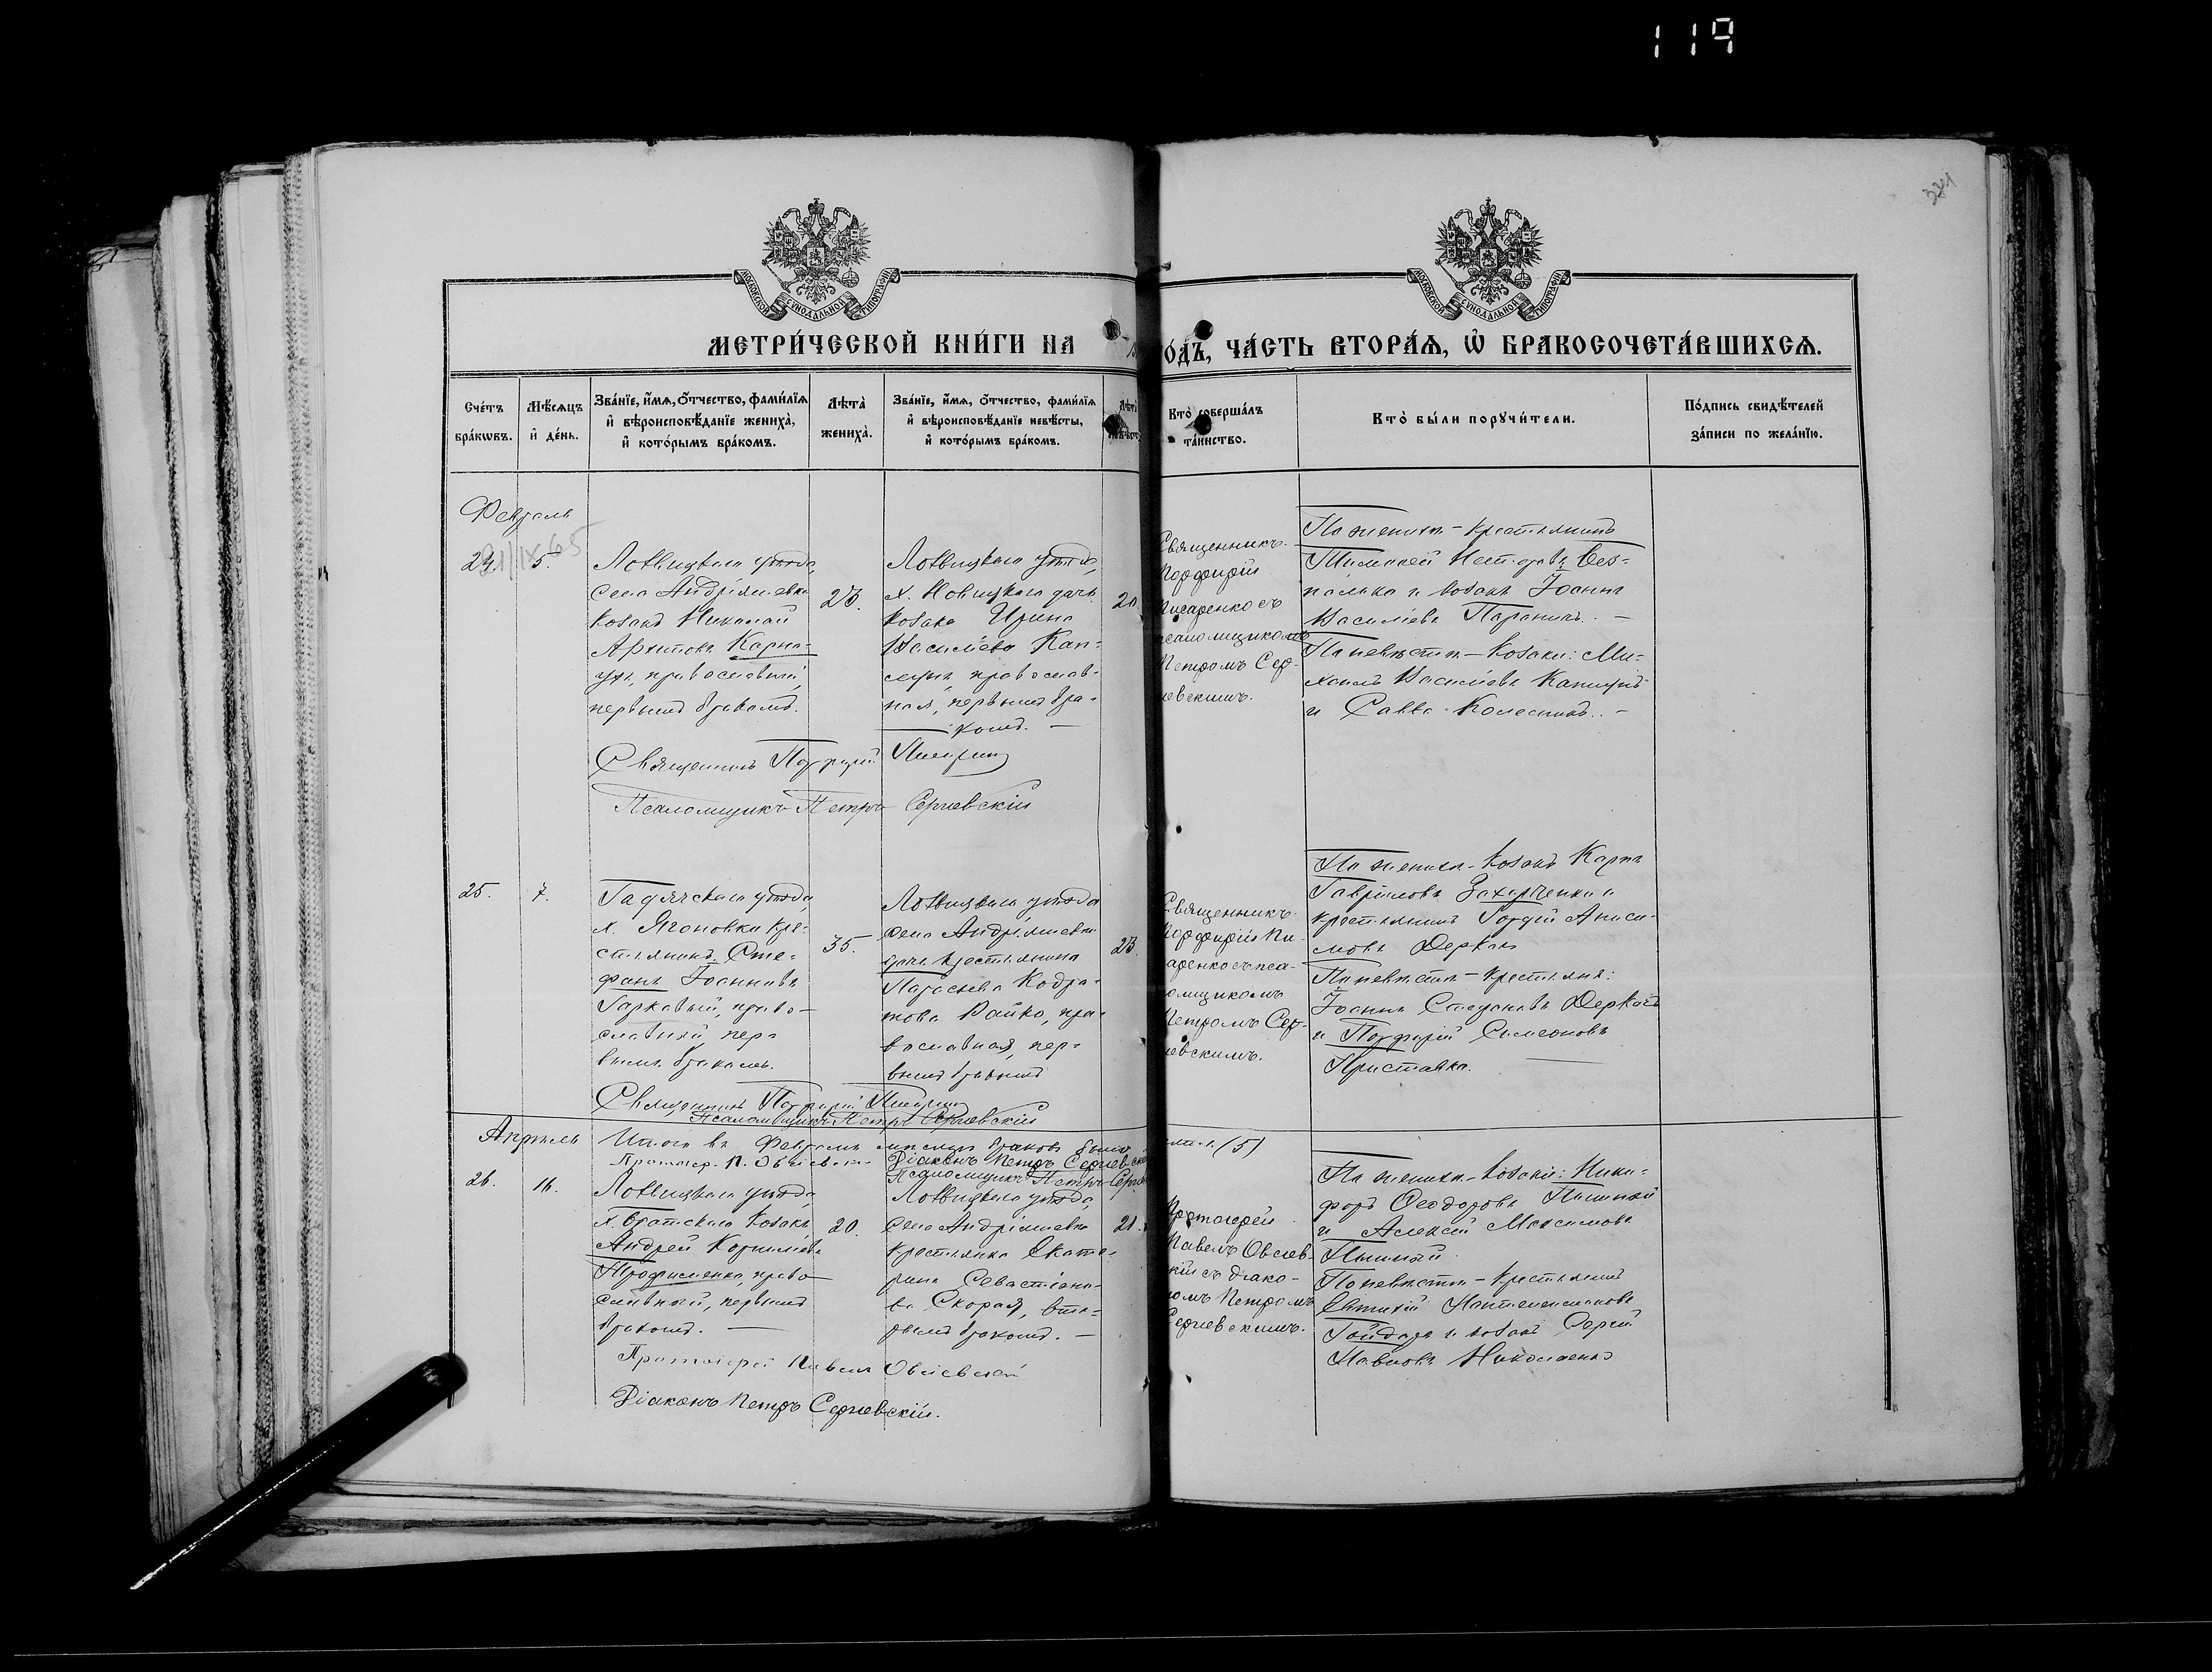 119
341
МОСКОВСКОЙ СУНОДАЛЬНОЙ ТИПОГРАФІИ
МОСКОВСКОЙ СУНОДАЛЬНОЙ ТИПОГРАФІИ
МЕТРИ́ЧЕСКОЙ КНИ́ГИ НА
О́ДЪ, ЧА́СТЬ ВТОРА́Ѧ, Ѡ҆ БРАКОСОЧЕТА́ВШИХСѦ.
Сче́тъ бра́кѡвъ.
Мѣ́сѧцъ и҆ де́нь.
Зва́нїе, и҆́мѧ, ѻ҆́тчество, фами́лїѧ
и҆ вѣроисповѣ́данїе жениха̀,
и҆ кото́рымъ бра́комъ.
Лѣта̀ жениха̀.
Зва́нїе, и҆́мѧ, ѻ҆́тчество, фами́лїѧ
и҆ вѣроисповѣ́данїе невѣ́сты,
и҆ кото́рымъ бра́комъ.
Кто̀ соверша́лъ
та́инство.
Кто̀ бы́ли порꙋчи́тели.
По́дпись свидѣ́телей
за́писи по жела́нїю.
Февраль
24. 5.
21/IX 65
Лохвицкаго уѣзда,
села Андріяшевки
козакъ Николай
Архиповъ Карпа-
православный,
первымъ бракомъ.
23.
Лохвицкаго уѣзда,
х. Новицкаго дочь
козака Ирина
Васильева Кап-
православ-
ная, первымъ бра-
комъ. —
20
Священникъ
Порфирій
Писаренко съ
псаломщикомъ
Петромъ Сер-
гіевскимъ.
По женихѣ - крестьянинъ
Тимофей
и козакъ Іоаннъ
Василіевъ
По невѣстѣ — козаки: Ми-
хаилъ Василіевъ
и Савва Колесникъ. —
Священникъ Порфирій Писаренко
Псаломщикъ Петръ Сергіевскій
25. 7.
Гадячскаго уѣзда,
х. Ягоновки кре-
стьянинъ Сте-
фанъ Іоанновъ
Гаркавый, право-
славный, пер-
вымъ бракомъ.
35.
Лохвицкаго уѣзда
села Андріяшевки
дочь крестьянина
Кодра-
това Вайко, пра-
вославная, пер-
вымъ бракомъ
23.
Священникъ
Порфирій Пи-
саренко съ пса-
ломщикомъ
Петромъ Сер-
гіевскимъ.
По женихѣ - козакъ Карпъ
Гавріиловъ Захарченко и
крестьянинъ Гордій Аниси-
мовъ Деркачъ
По невѣстѣ — крестьяне:
Іоаннъ Стефановъ Деркачъ
и Порфирій Симеоновъ
Приставка.
Священникъ Порфирій Писаренко
Псаломщикъ Петръ Сергіевскій
Апрѣль
Итого въ Февралѣ мѣсяцѣ браковъ было
(5)
Протоіер. П. Овсіевскій
Діаконъ Петръ Сергіевскій
Псаломщикъ Петръ Сергіев
26. 16.
Лохвицкаго уѣзда,
х. Братскаго козакъ
Андрей Корниліевъ
Трофименко, право-
славный, первымъ
бракомъ. —
20.
Лохвицкаго уѣзда,
села Андріяшевки
крестьянка Екате-
рина Севастіано-
ва Скорая, вто-
рымъ бракомъ. —
21.
Протоіерей
Павелъ Овсіев-
скій съ діако-
номъ Петромъ
Сергіевскимъ.
По женихѣ - козаки: Ники-
форъ Феодоровъ Пышный
и Алексій Максимовъ
Пышный
По невѣстѣ - крестьянинъ
Евтихій
Гойдарь и козакъ Сергій
Павловъ Николаенко
Протоіерей Павелъ Овсіевскій
Діаконъ Петръ Сергіевскій.